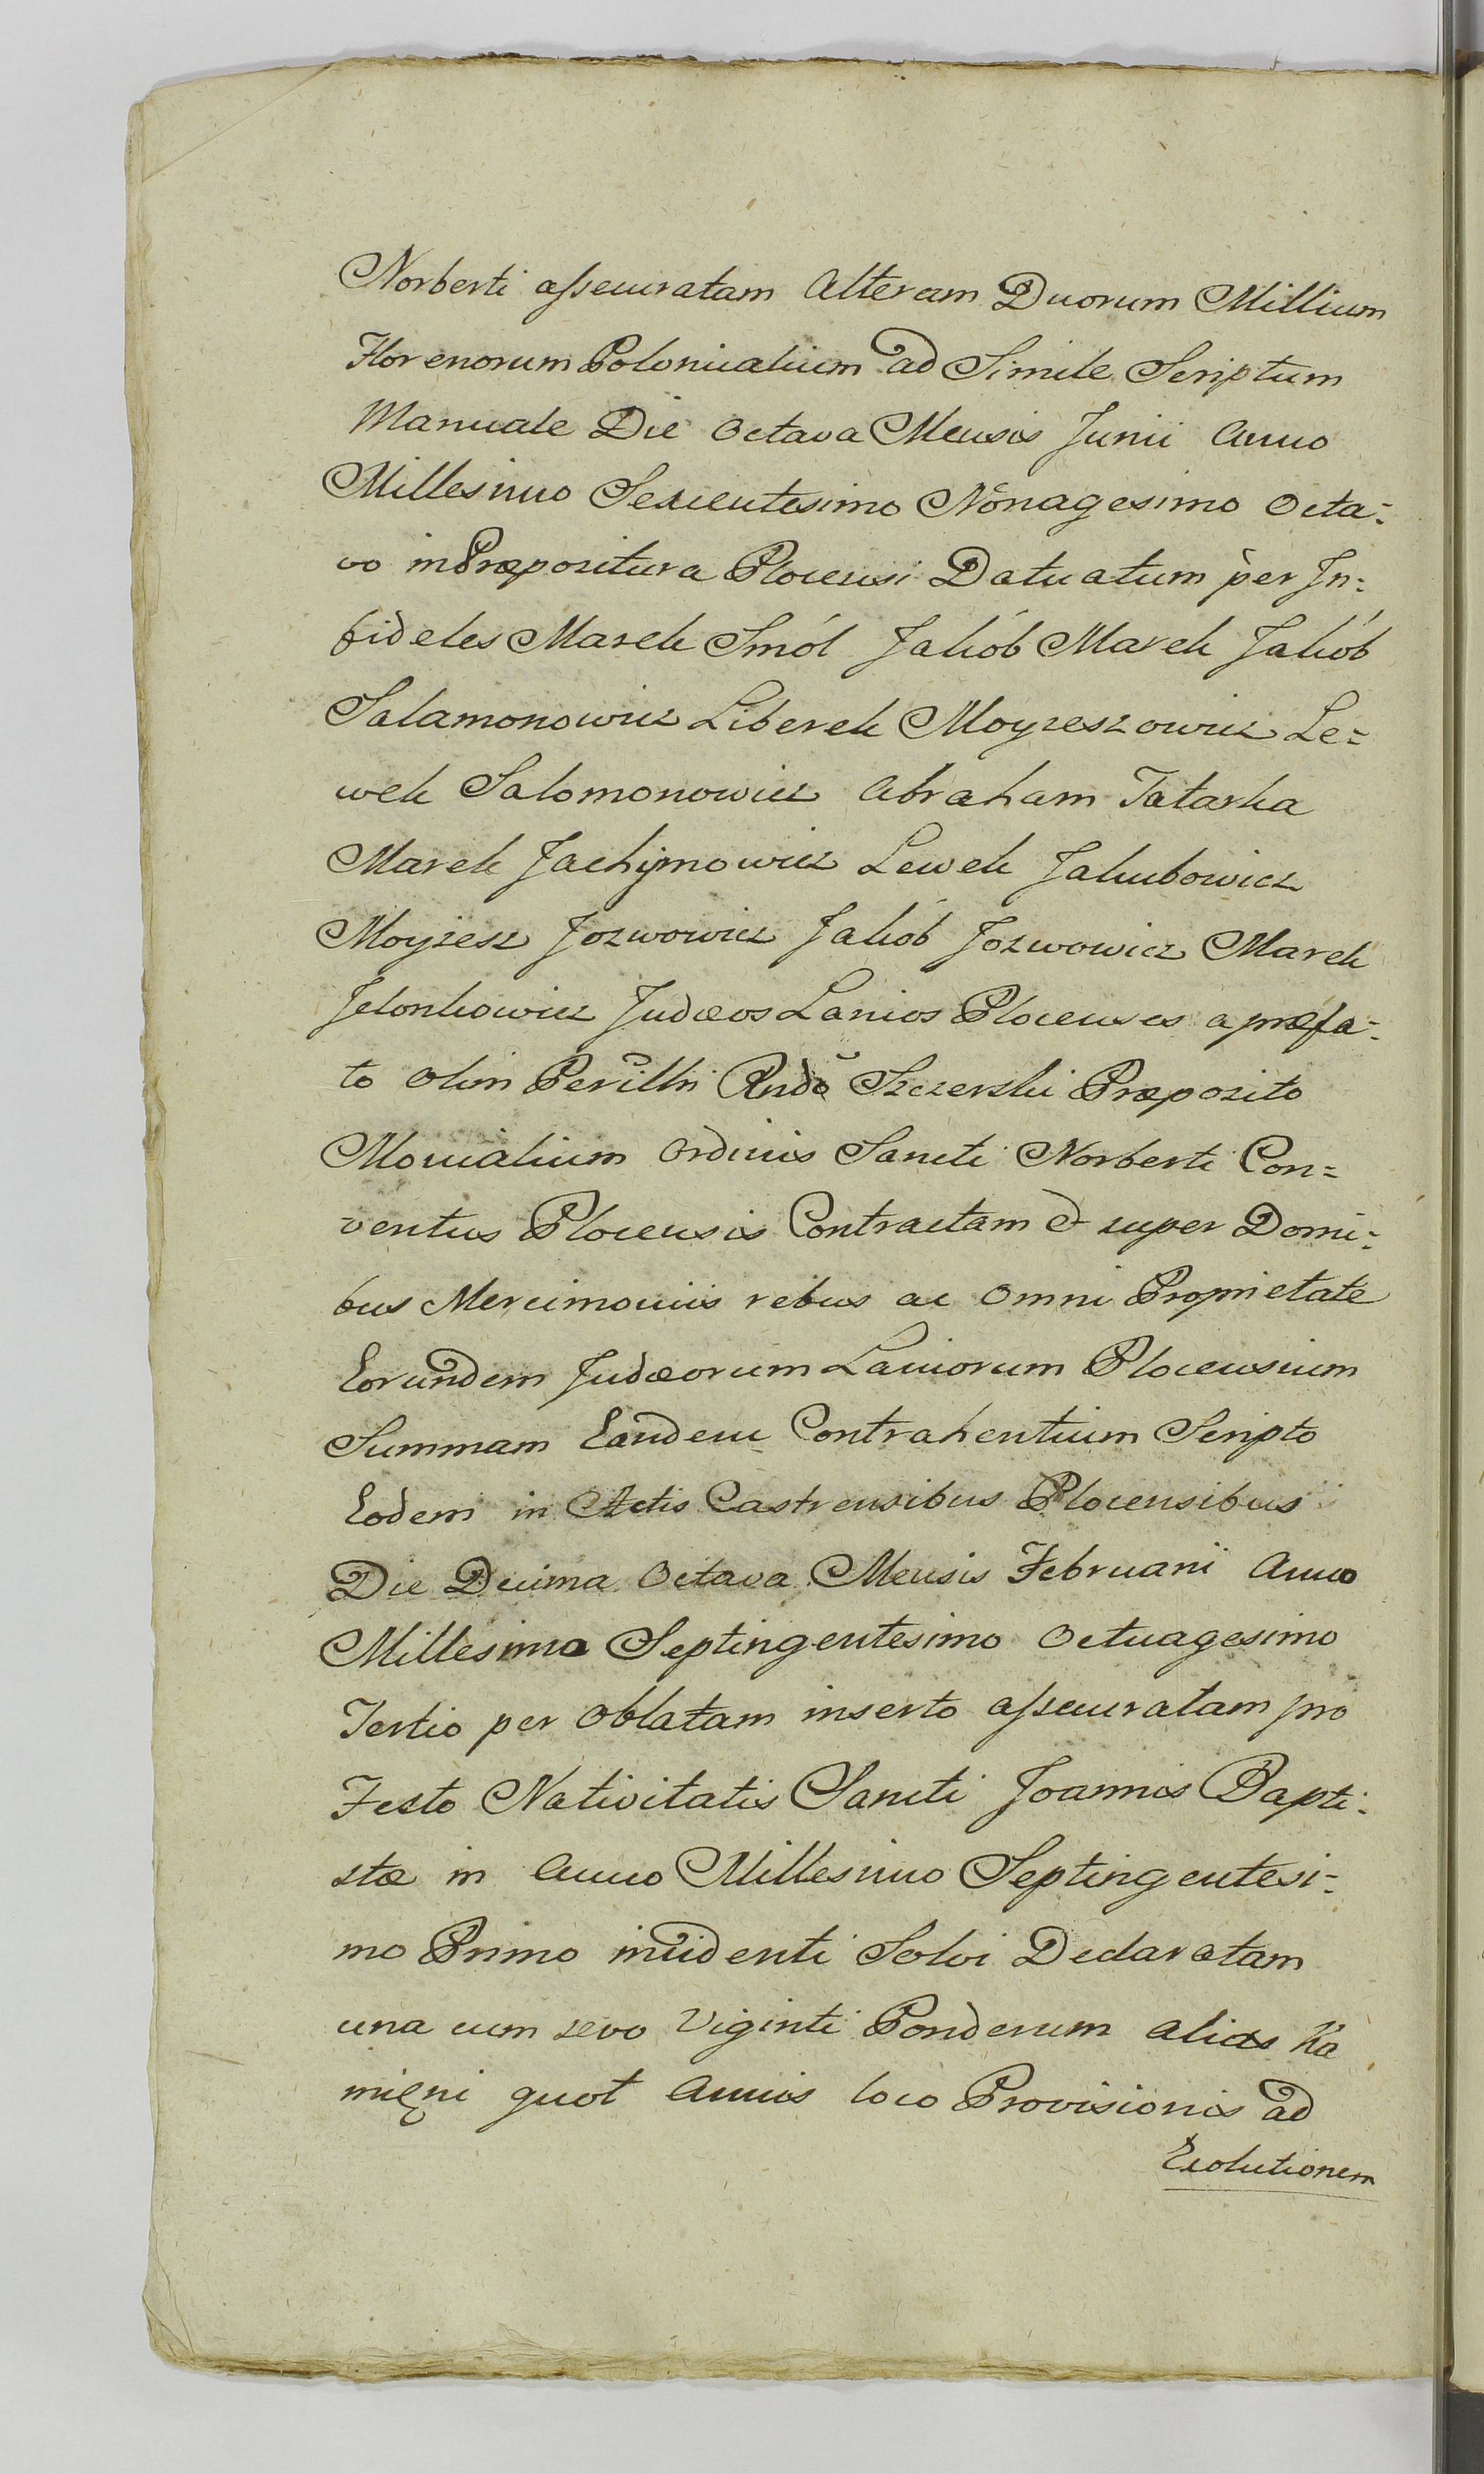 Norberti assecuratam Alteram Duorum Millium
Florenorum Polonicalium ad Simile Scriptum
Manuale Die Octava Mensis Junii Anno
Millesimo Sexcentesimo Nonagesimo Octa=
vo in Præpositura Plocensi Datuatum per In=
fideles Marek Smól Jakób Marek Jakób
Salamonowicz Liberek Moyzeszowicz Le=
wek Salomonowicz Abraham Tatarka
Marek Jachymowicz Lewek Jakubowicz
Moyżesz Jozwowicz Jakób Jozwowicz Marek
Jelonkowicz Judæos Lanios Plocenses a præfa=
to olim Perilli Rndo Szczerski Præposito
Monialium Ordinis Sancti Norberti Con=
ventus Plocensis Contractam et super Domi=
bus Mercimoniis rebus ac Omni Proprietate
Eorundem Judæorum Laniorum Plocensium
Summam Eandem Contrahentium Scripto
Eodem in Actis Castrensibus Plocensibus
Die Decima Octava Mensis Februarii Anno
Millesimo Septingentesimo Octuagesimo
Tertio per Oblatam inserto assecuratam pro
Festo Nativitatis Sancti Joannis Bapti=
stæ in Anno Millesimo Septingentesi=
mo Primo incidenti Solvi Declaratam
una cum sevo Viginti Ponderum alias Ka
mięni quot Annis loco Provisionis ad
Exolutionem